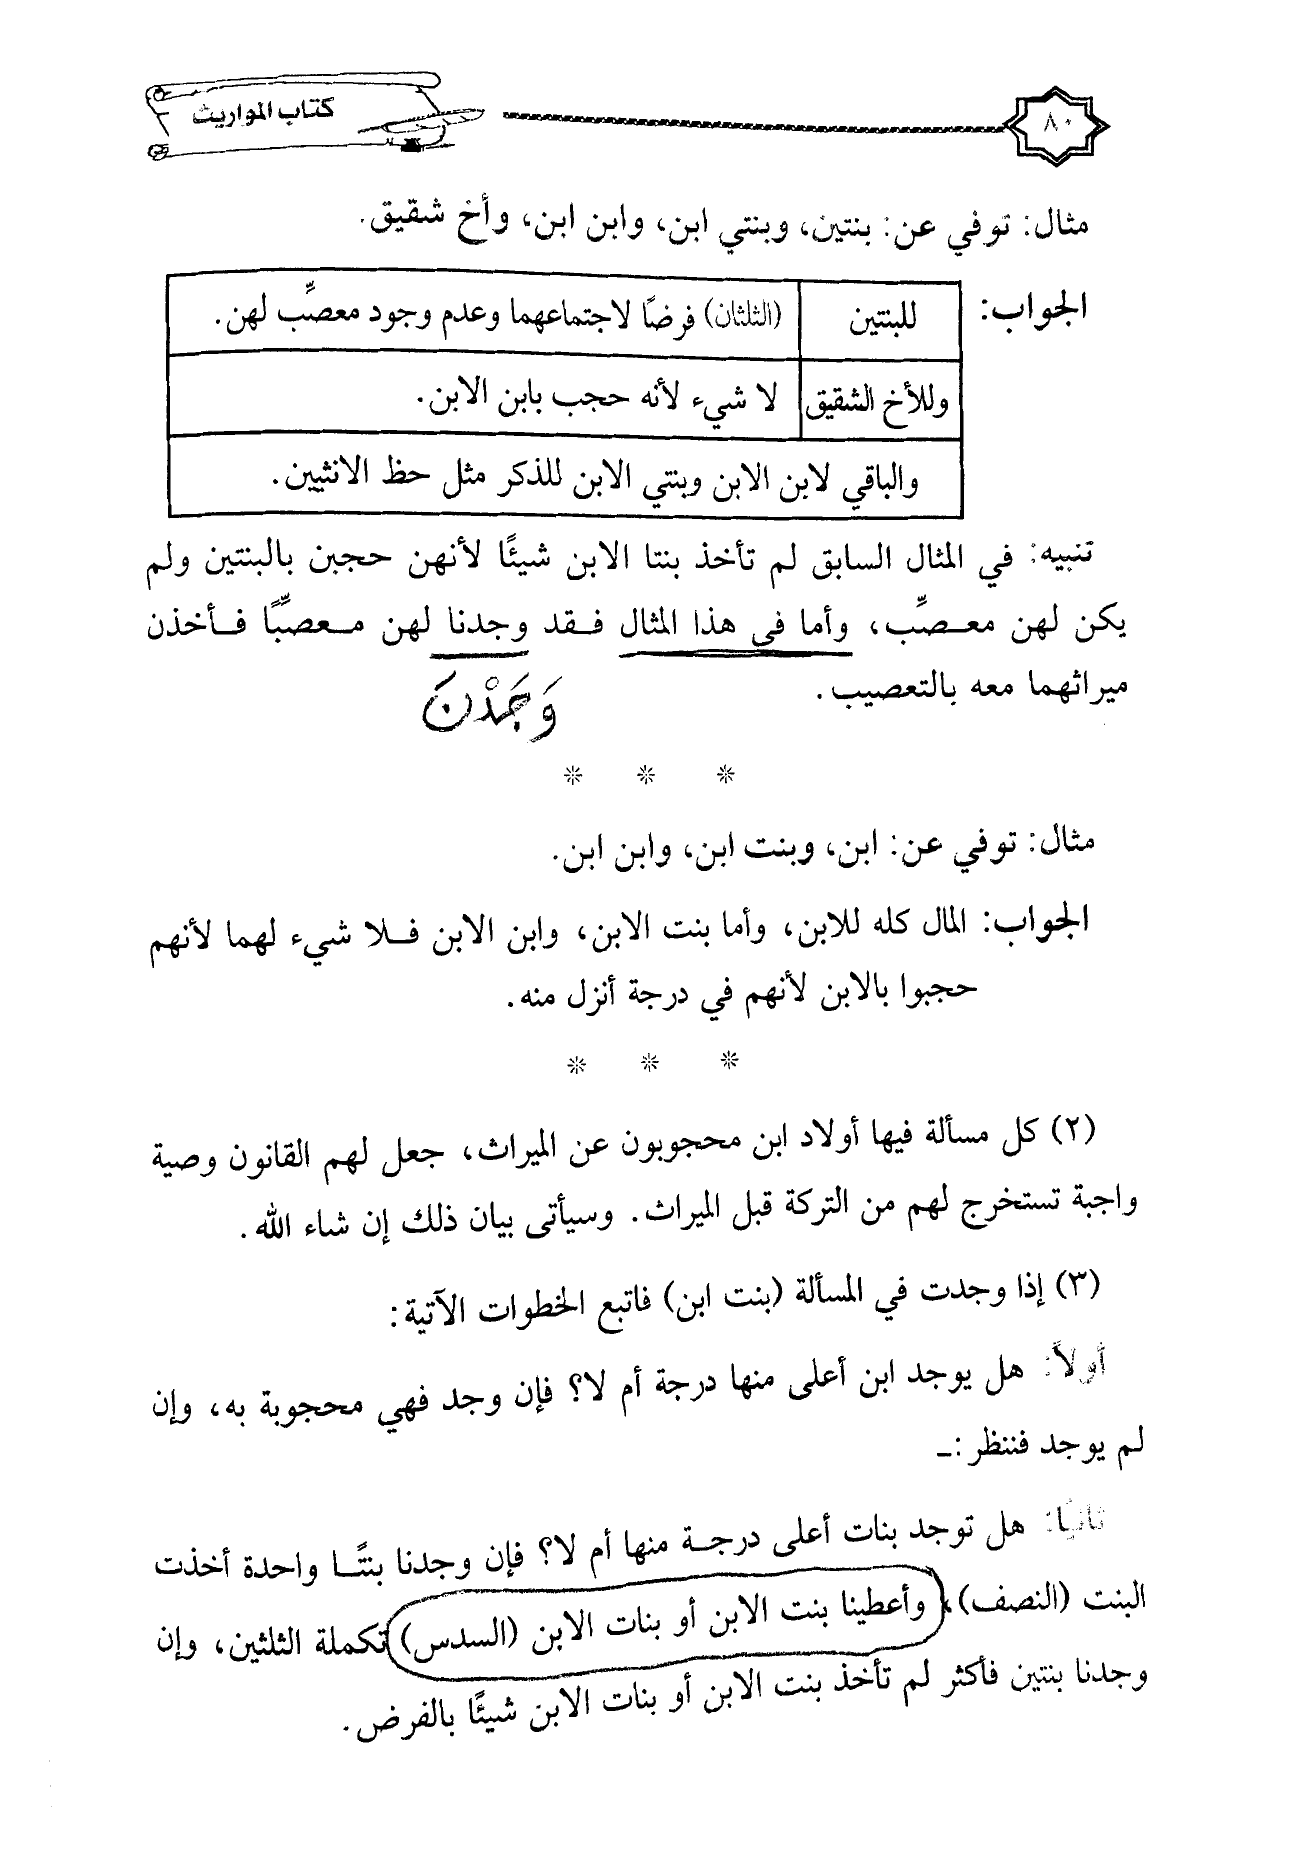 ٨٠
كتاب المواريث
مثال: توفي عن: بنتين، وبنتي ابن، وابن ابن، وأخ شقيق.
الجواب:
للبنتين
(الثلثان) فرضًا لاجتماعهما وعدم وجود معصِّب لهن.
وللأخ الشقيق
لا شيء لأنه حجب بابن الابن.
والباقي لابن الابن وبنتي الابن للذكر مثل حظ الانثيين.
تنبيه: في المثال السابق لم تأخذ بنتا الابن شيئًا لأنهن حجبن بالبنتين ولم
يكن لهن معصِّب، وأما في هذا المثال فقد وجدنا لهن معصِّبًا فأخذن
ميراثهما معه بالتعصيب.
وَجَدْنَ
مثال: توفي عن: ابن، وبنت ابن، وابن ابن.
الجواب: المال كله للابن، وأما بنت الابن، وابن الابن فلا شيء لهما لأنهم
حجبوا بالابن لأنهم في درجة أنزل منه.
(٢) كل مسألة فيها أولاد ابن محجوبون عن الميراث، جعل لهم القانون وصية
واجبة تستخرج لهم من التركة قبل الميراث. وسيأتى بيان ذلك إن شاء الله.
(٣) إذا وجدت في المسألة (بنت ابن) فاتبع الخطوات الآتية:
أولاً: هل يوجد ابن أعلى منها درجة أم لا؟ فإن وجد فهي محجوبة به، وإن
لم يوجد فننظر:ـ
ثانيًا: هل توجد بنات أعلى درجة منها أم لا؟ فإن وجدنا بنتًا واحدة أخذت
البنت (النصف)، وأعطينا بنت الابن أو بنات الابن (السدس) تكملة الثلثين، وإن
وجدنا بنتين فأكثر لم تأخذ بنت الابن أو بنات الابن شيئًا بالفرض.